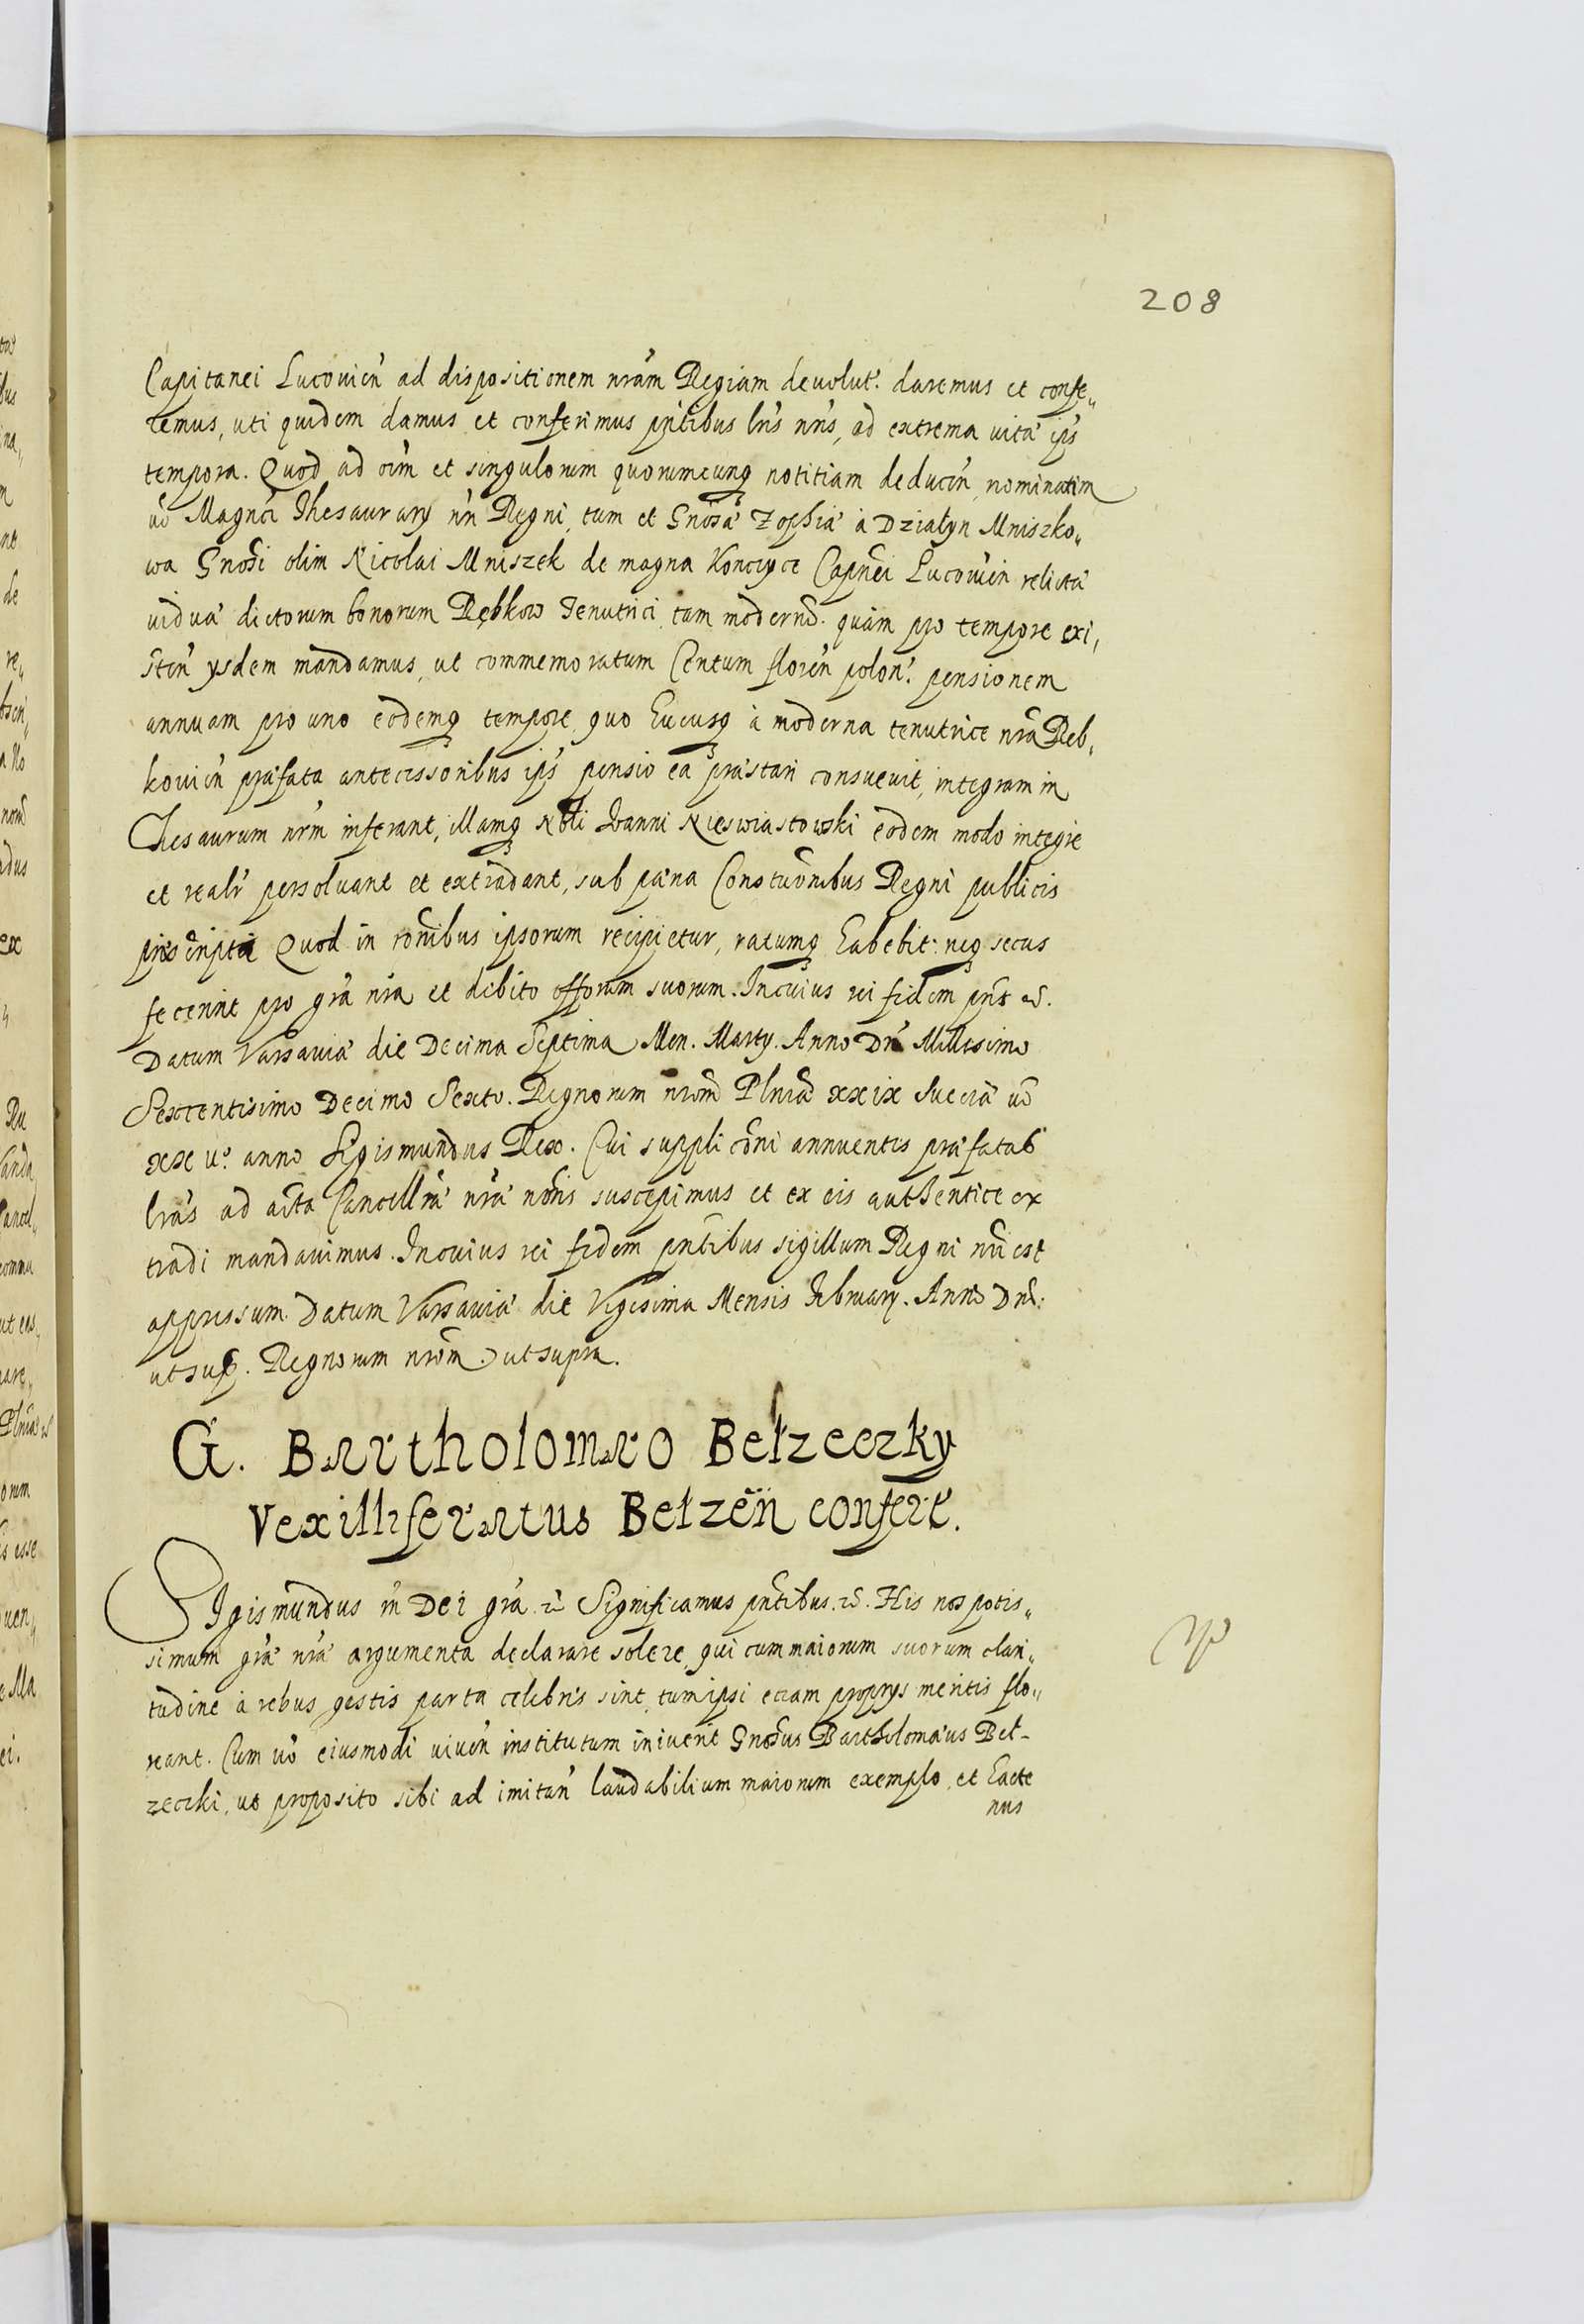 208
Capitanei Lucovien̄ ad dispositionem nrãm Regiam devolut. daremus et confe„
remus, uti quidem damus et conferimus pñtibus lrĩs nrĩs, ad extrema vitæ ip̃s
tempora. Quod ad oĩm et singulorum quorumcunq notitiam deducen̄, nominatim
vo Magnci Thesaurarÿ nri Regni, tum et Gnosæ Zophiæ à Działyn Mniszko„
wa Gnosi olim Nicolai Mniszek de magna Konczyce Capnei Lucovien relictæ
viduæ dictorum bonorum Rębkow Tenutrici, tam modernæ. quàm pro tempore exi„
sten̄ ysdem mandamus, ut commemoratum Centum floren̄ polon. pensionem
annuam pro uno eodemq tempore, quo hucusq à moderna tenutrice nrã Reb„
kovien̄ præfata antecessoribus ip̃s pensio ea præstari consuevit, integram in
Thesaurum nrm inferant, illamq Nbli Ioanni Nieswiastowski eodem modo integre
et realr persolvant et extradant, sub pæna Constuõnibus Regni publicis
præscripta Quod in rõnibus ipsorum recipietur, ratumq habebit: neq secus
fecerint pro grã nrã et debito offorum suorum. In cuius rei fidem pñs etc.
Datum Varsaviæ die Decima Septima Men. Marty. Anno Dñi Millesimo
Sexcentisimo Decimo Sexto. Regnorum nrõm Plniæ xxix Sueciæ vo
xx v̊. anno Sigismundus Rex. Cui supplicõni annuentes præfatas
lrãs ad acta Cancellriæ nrã nõnis suscepimus et ex eis authentice ex
tradi mandavimus. In cuius rei fidem pñtibus sigillum Regni nri est
appressum. Datum Varsaviæ die Vigesima Mensis February. Anno Dñi:
ut sup. Regnorum nrõm. ut supra.
G. Bartholomæo Bełzeczky
Vexilliferatus Bełzen̄ confert.
Sigismundus III Dei grã etc Significamus pñtibus. etc. His nos potis„
simum græ nræ argumenta declarare solere, qui cum maiorum suorum clari„
tudine à rebus gestis parta celebris sint, tum ipsi etiam propriis meritis flo„
reant. Cum vo eiusmodi viven̄ institutum iniverit Gnosus Bartholomæus Beł-
zeczki, ut proposito sibi ad imitan̄ laudabilium maiorum exemplo, et hacte
nus